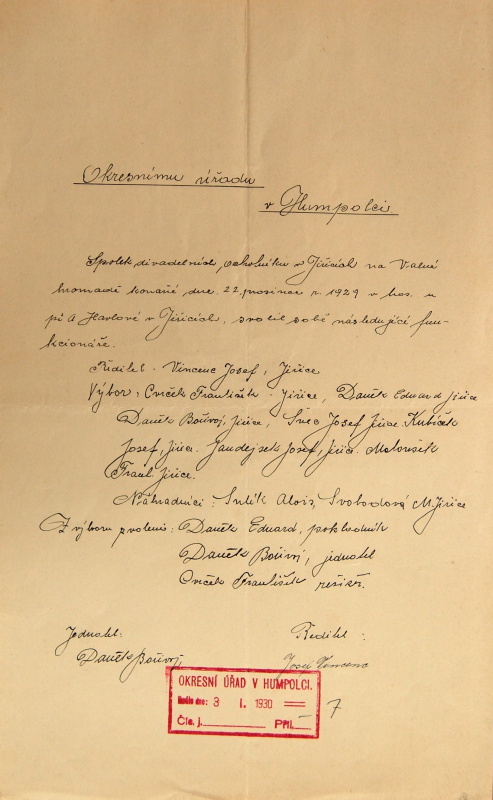 Okresnímu úřadu
v Humpolci
Spolek divadelních ochotníků v Jiřicích na Valné
hromadě konané dne 22. prosince r. 1929 v hos. u
pí A Havlové v Jiřicích, zvolil sobě následující fun-
kcionáře.
Ředitel - Vincenc Josef, Jiřice
Výbor: Cvrček František - Jiřice, Daněk Eduard Jiřice
Daněk Bořivoj, Jiřice, Švec Josef Jiřice. Kubíček
Josef, Jiřice. Jandejsek Josef, Jiřice. Matoušek
Frant. Jiřice.
Náhradníci: Alois, Svobodová M. Jiřice
Z výboru zvoleni: Daněk Eduard, pokladník
Daněk Bořivoj, jednatel
Cvrček František režisér.
Jednatel: Ředitel:
Daněk Bořivoj Josef Vincenc
OKRESNÍ ÚŘAD V HUMPOLCI.
Došlo dne: 3 I. 1930
Čís. j. Příl. 7